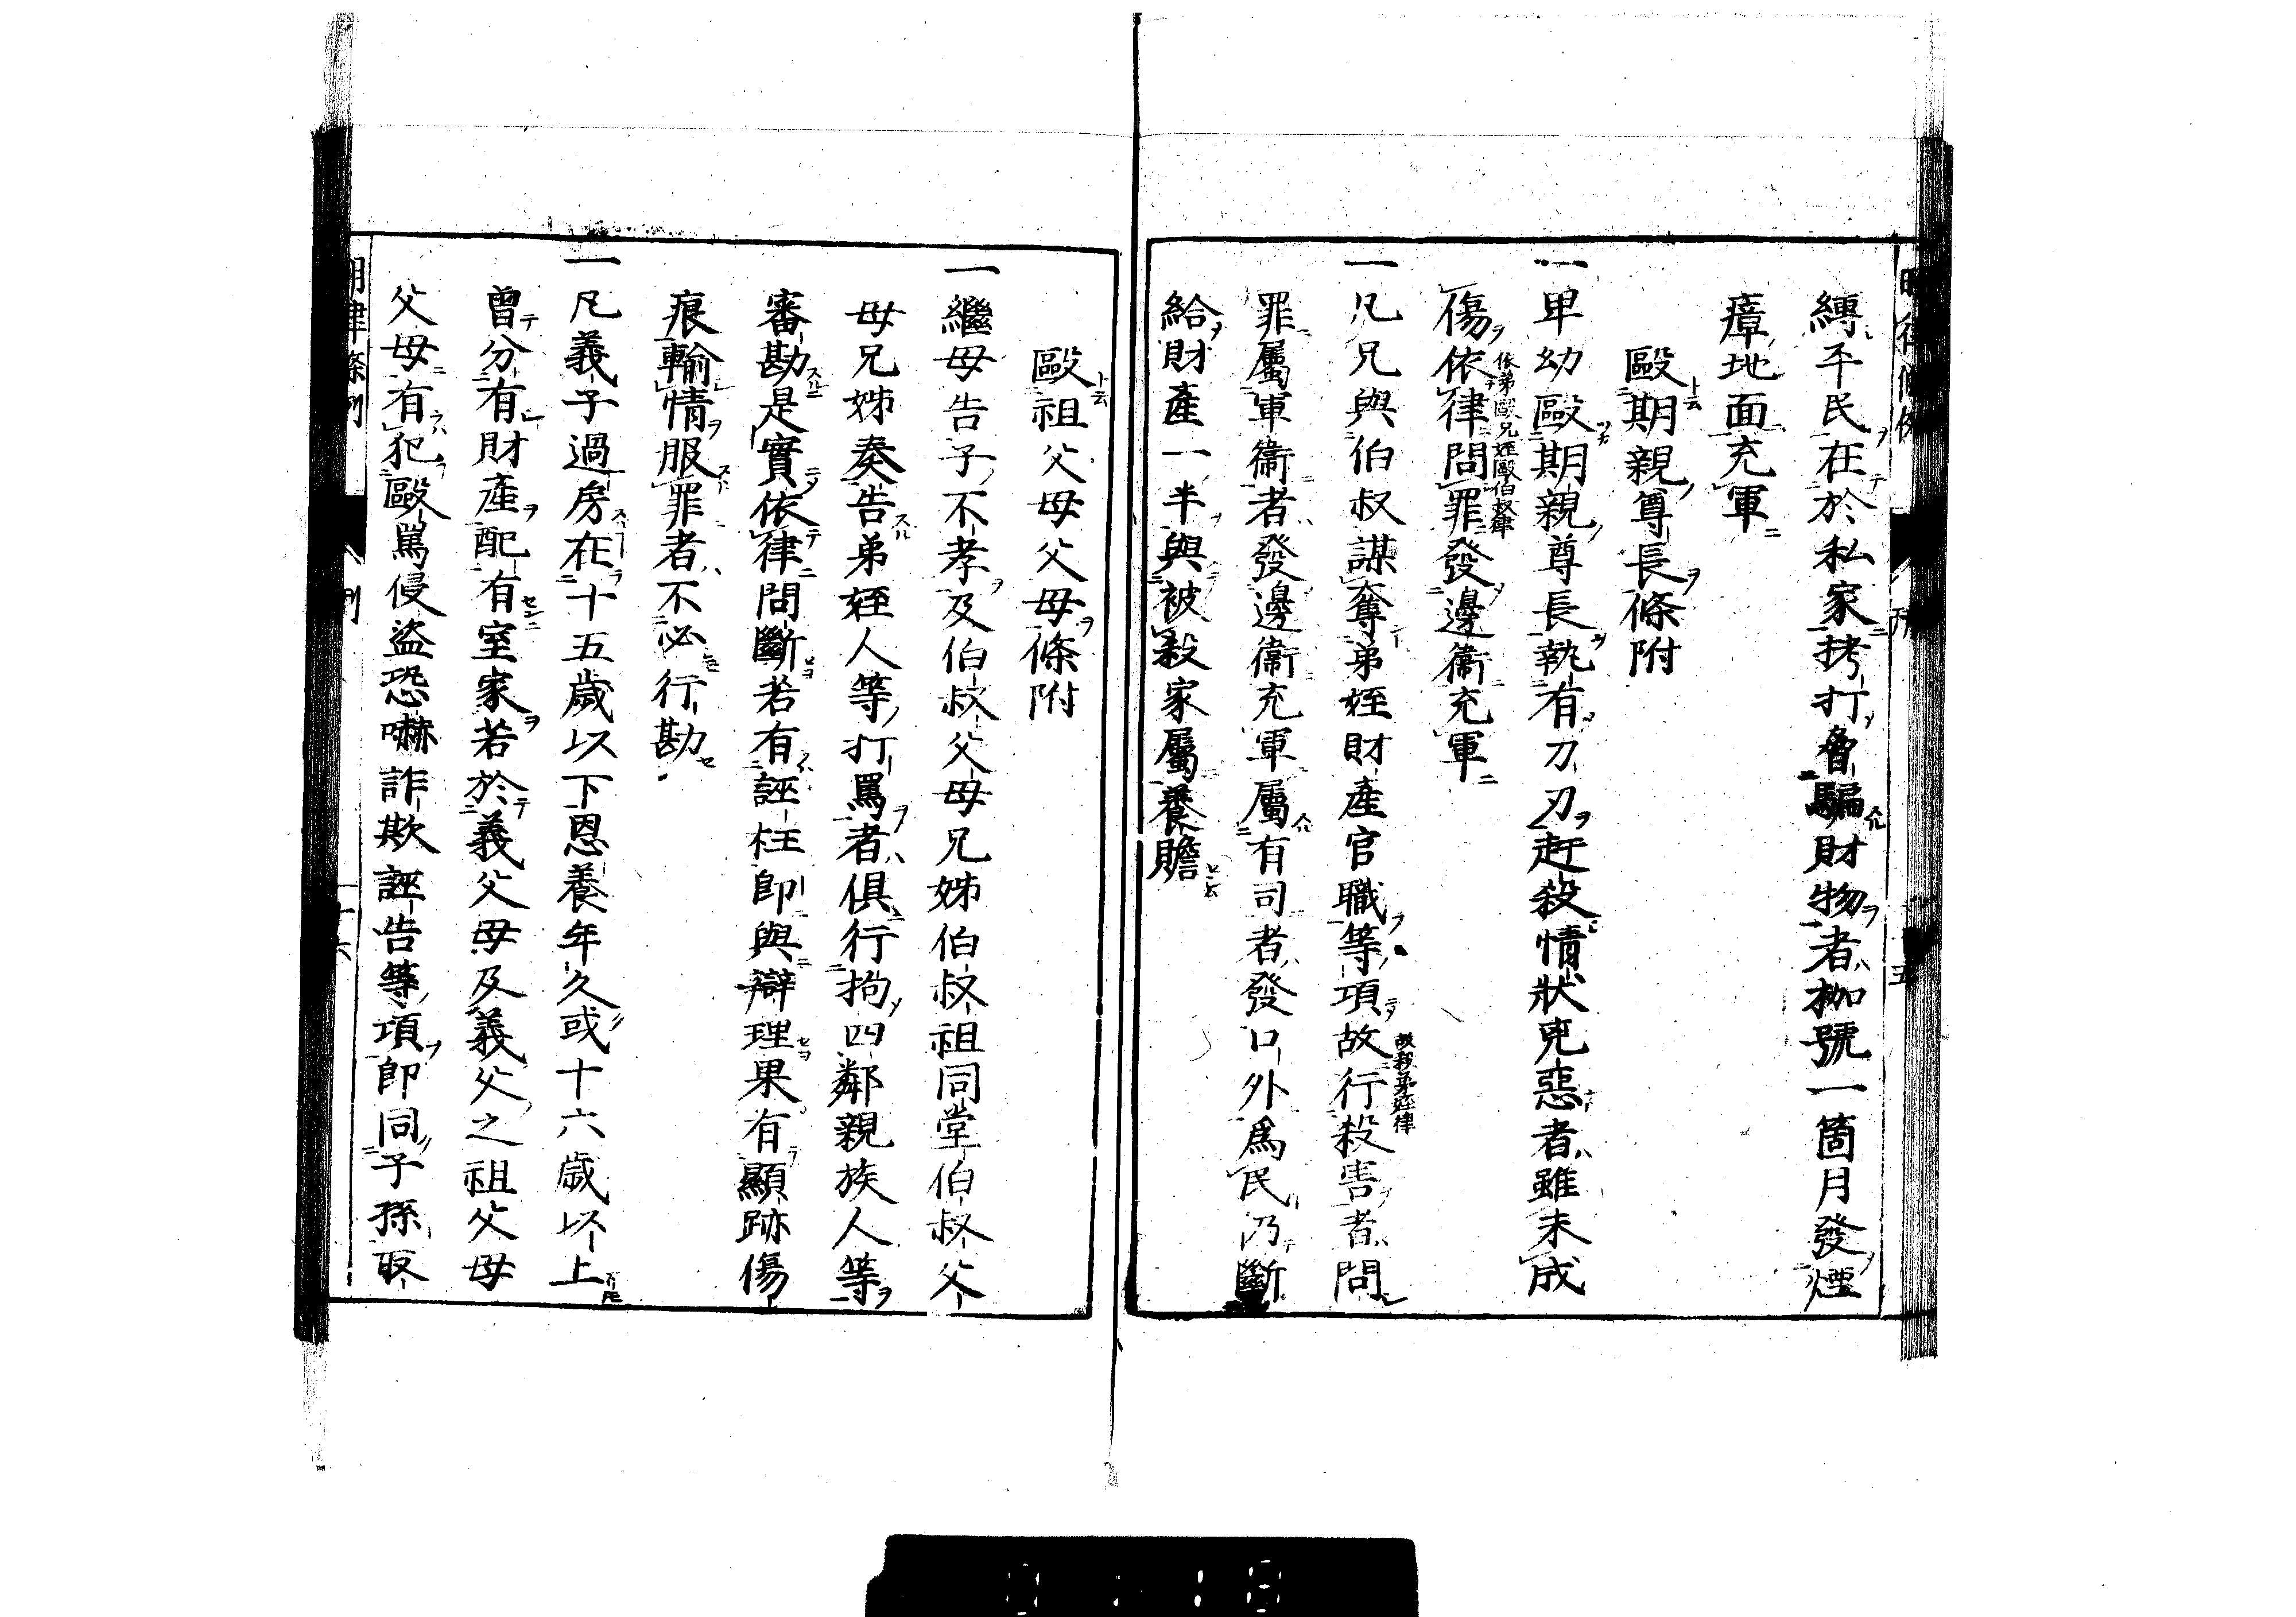 縛平民在於私家拷打脅騙財物者枷號一箇月發煙
瘴地面充軍
毆期親尊長條附
一卑幼毆期親尊長執有刀刃赶殺情狀兇惡者雖未成
傷依律問罪發邊衞充軍
依弟毆兄姪毆伯叔律
一凡兄與伯叔謀奪弟姪財產官職等項故行殺害者問
故殺弟姪律
罪屬軍衞者發邊衞充軍屬有司者發口外爲民乃斷
給財產一半與被殺家屬養贍
毆祖父母父母條附
一繼母告子不孝及伯叔父母兄姊伯叔祖同堂伯叔父
母兄姊奏告弟姪人等打罵者俱行拘四鄰親族人等
審勘是實依律問斷若有誣枉即與辯理果有顯跡傷
痕輸情服罪者不必行勘
一凡義子過房在十五歲以下恩養年久或十六歲以上
曾分有財產配有室家若於義父母及義父之祖父母
父母有犯毆罵侵盜恐嚇詐欺誣告等項即同子孫取
明律條例